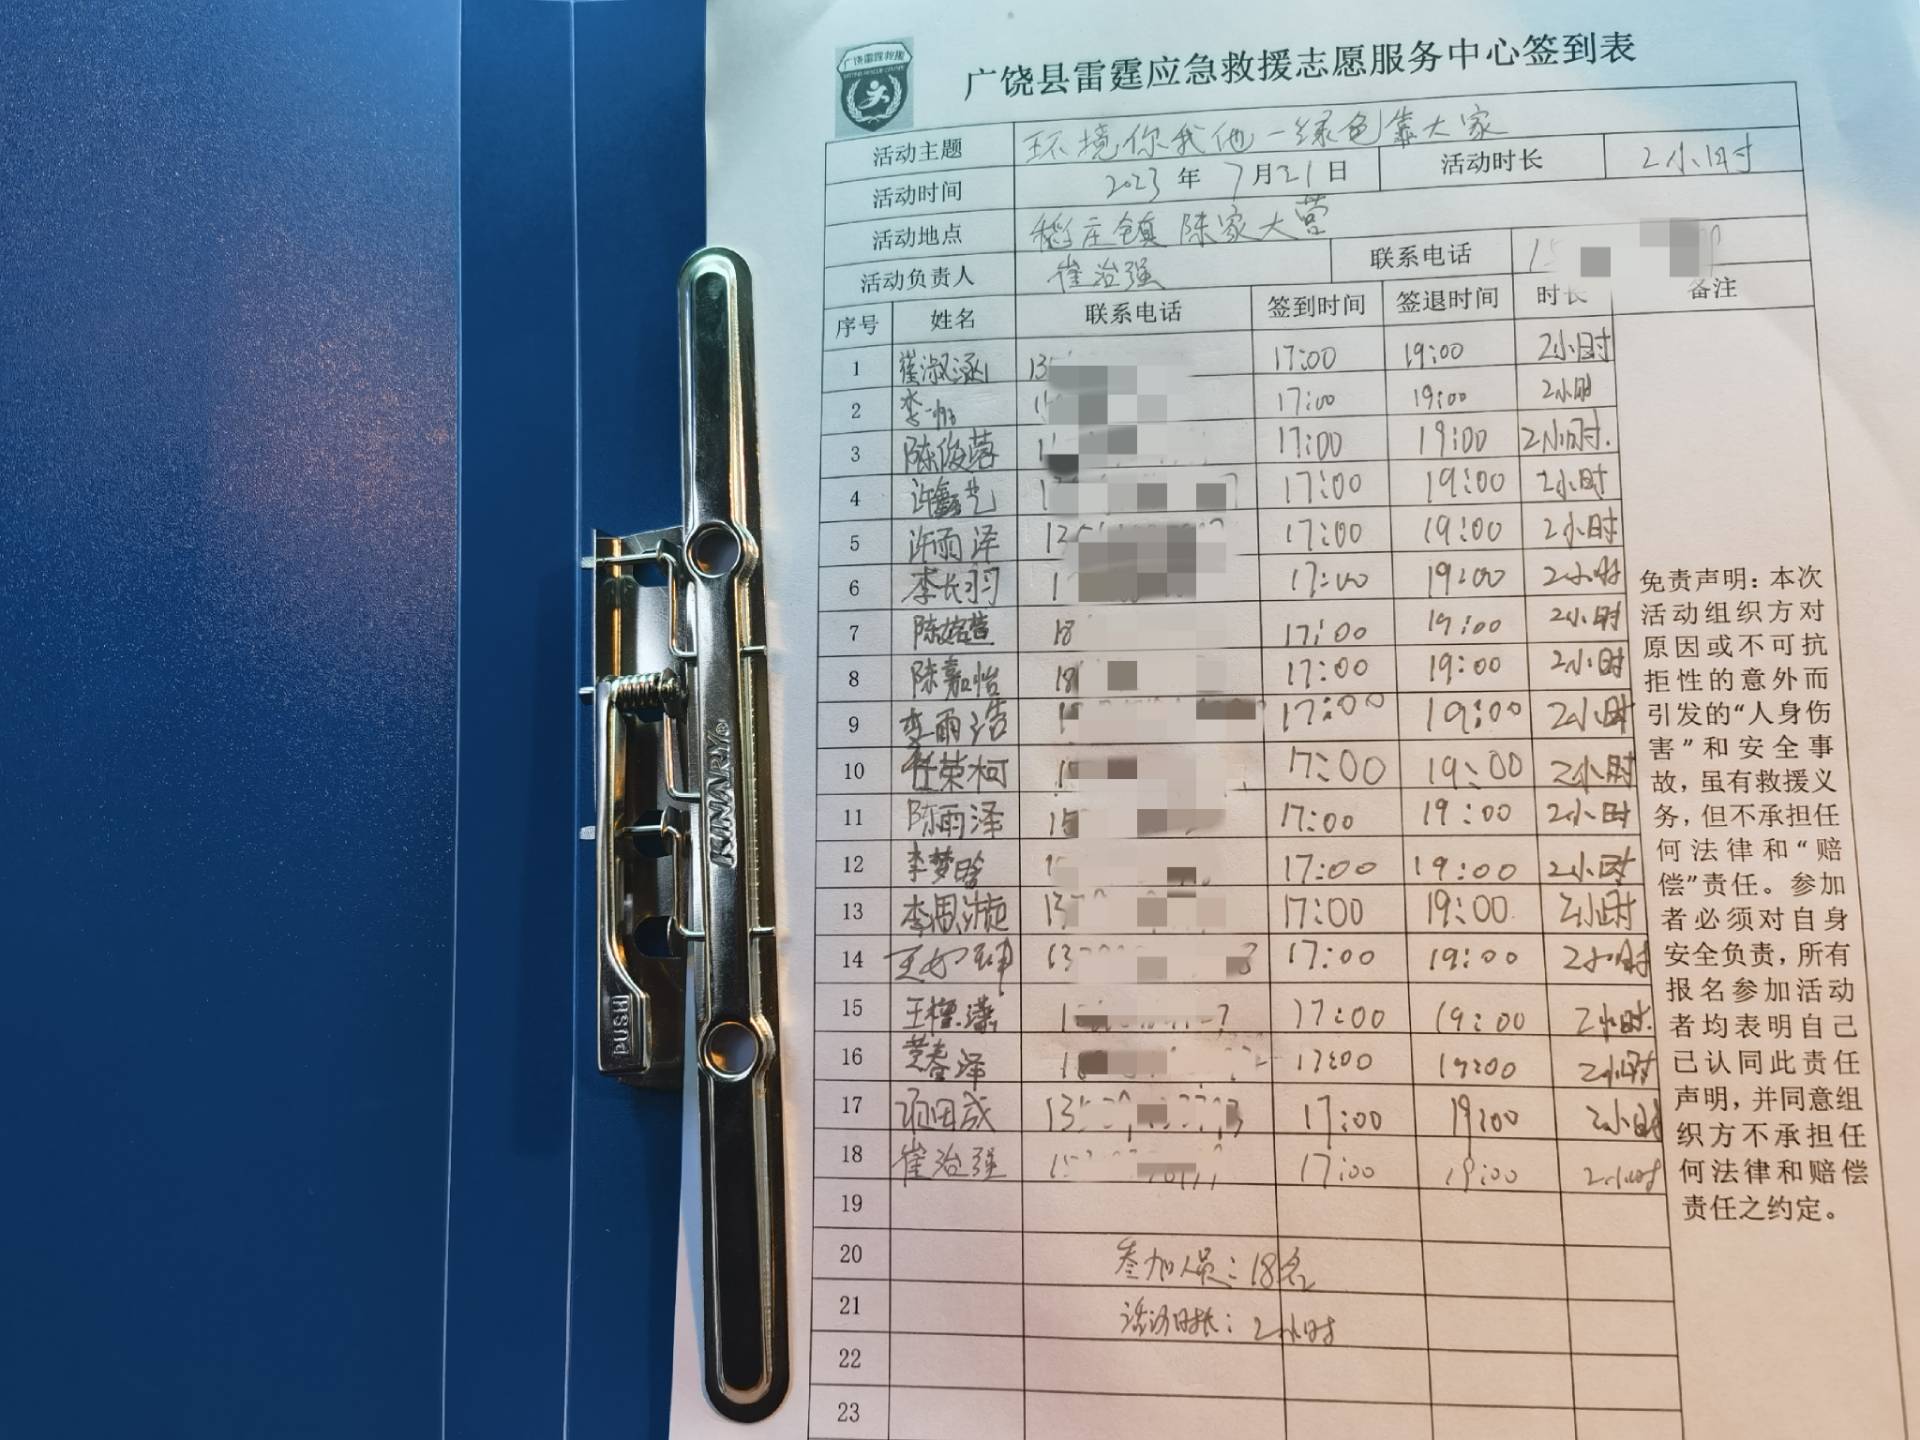 广饶雷霆救援
广饶县雷霆应急救援志愿服务中心签到表
活动主题 环境你我他一绿色靠大家
活动时间 2023年7月21日 活动时长 2小时
活动地点 稻庄镇陈家大营
活动负责人 崔治强 联系电话
序号 姓名 联系电话 签到时间 签退时间 时长 备注
1 崔淑涵 17:00 19:00 2小时
2 李 17:00 19:00 2小时
3 陈俊蓉 17:00 19:00 2小时.
4 许鑫艺 17:00 19:00 2小时
5 许雨泽 17:00 19:00 2小时
6 李长羽 17:00 19:00 2小时
7 陈 18 17:00 19:00 2小时
8 陈嘉怡 17:00 19:00 2小时
9 李雨浩 17:00 19:00 2小时
10 任荣柯 17:00 19:00 2小时
11 陈雨泽 15 17:00 19:00 2小时
12 李梦晗 17:00 19:00 2小时
13 李恩 17:00 19:00 2小时
14 王如坤 17:00 19:00 2小时
15 王 17:00 19:00 2小时.
16 黄春泽 17:00 19:00 2小时
17 项田成 17:00 19:00 2小时
18 崔治强 17:00 19:00 2小时
19
20 参加人员：18名
21 活动时长：2小时
22
23
免责声明：本次
活动组织方对
原因或不可抗
拒性的意外而
引发的“人身伤
害”和安全事
故，虽有救援义
务，但不承担任
何法律和“赔
偿”责任。参加
者必须对自身
安全负责，所有
报名参加活动
者均表明自己
已认同此责任
声明，并同意组
织方不承担任
何法律和赔偿
责任之约定。
KINARY®
PUSH